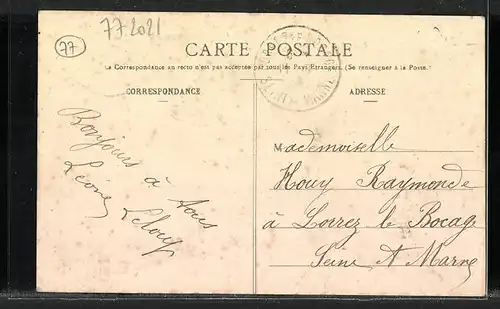 77 2021
77
CARTE POSTALE
La Correspondance au recto n'est pas acceptée par tous les Pays Étrangers. (Se renseigner à la Poste.)
CORRESPONDANCE
ADRESSE
Bonjours à tous
Léonie Leloup
Mademoiselle
Houy Raymonde
à Lorrez le Bocage
Seine et Marne